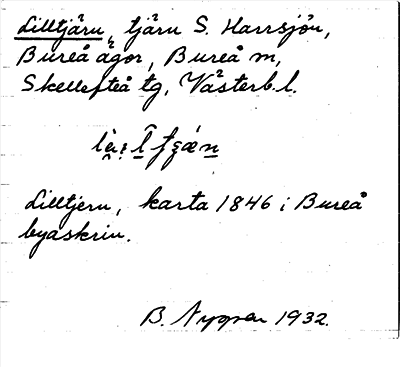 Lilltjärn, tjärn S. Harrsjön,
Bureå ägor, Bureå m,
Skellefteå tg, Västerb. l.
Lilltjern, karta 1846 i Bureå
byaskrin.
B. Nygren 1932.